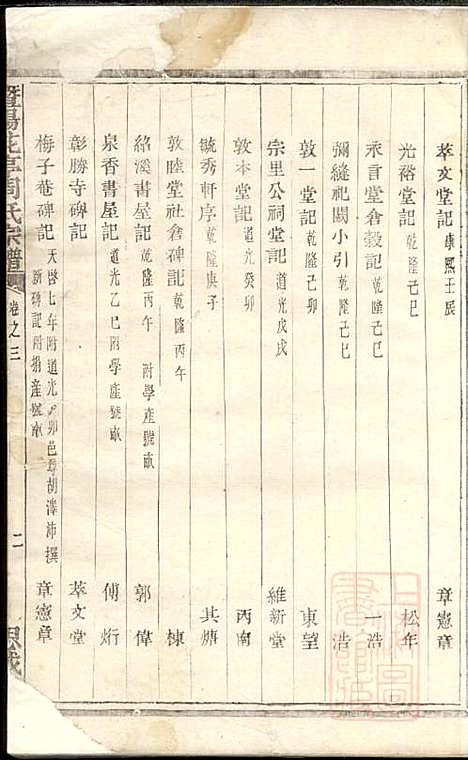 萃文堂記 康熙壬辰 章憲章
光裕堂記 乾隆己巳 松年
承言堂倉穀記 乾隆己巳 一浩
彌縫祀闕小引 乾隆己巳 浩
敦一堂記 乾隆己卯 東望
宗里公祠堂記 道光戊戌 維新堂
敦本堂記 道光癸卯 丙南
毓秀軒序 乾隆庚子 其㷍
敦睦堂社倉碑記 乾隆丙午 棟
絡溪書屋記 乾隆丙午 附學產號畝 郭偉
泉香書屋記 道光乙巳附學產號畝 傅炘
彰勝寺碑記 萃文堂
梅子菴碑記 天啓七年附道光 卯邑尊胡澤沛撰 新碑記附捐產號畝 章憲章
暨陽花亭周氏宗譜 卷之三 二 思成